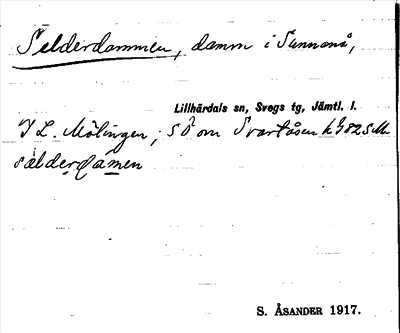 Selderdammen, damm i Sunnanå,
Lillhärdals sn, Svegs tg, Jämtl. l.
L. Mölingen; SÖ om Svartåsen
sælderdamen
S. ÅSANDER 1917.